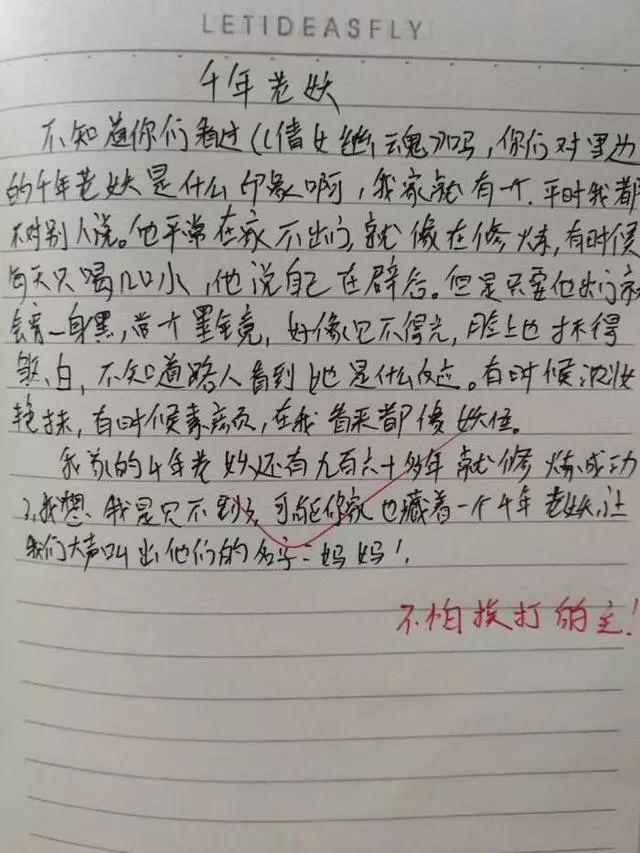 LETIDEASFLY
千年老妖
不知道你们看过《倩女幽魂》吗，你们对里边
的千年老妖是什么印象啊，我家就有一个.平时我都
不对别人说。他平常在家不出门，就像在修炼，有时候
每天只喝几口水，他说自己在辟谷。但是只要他出门就
会穿一身黑，带个墨镜，好像见不得光，脸上也抹得
煞白，不知道路人看到他是什么反应。有时候浓妆
艳抹，有时候素面，在我看来都像妖怪。
我家的千年老妖还有九百六十多年就修炼成功
了，我想、我是见不到了，可能你家也藏着一个千年老妖，让
我们大声叫出他们的名字：妈妈！
不怕挨打的主！